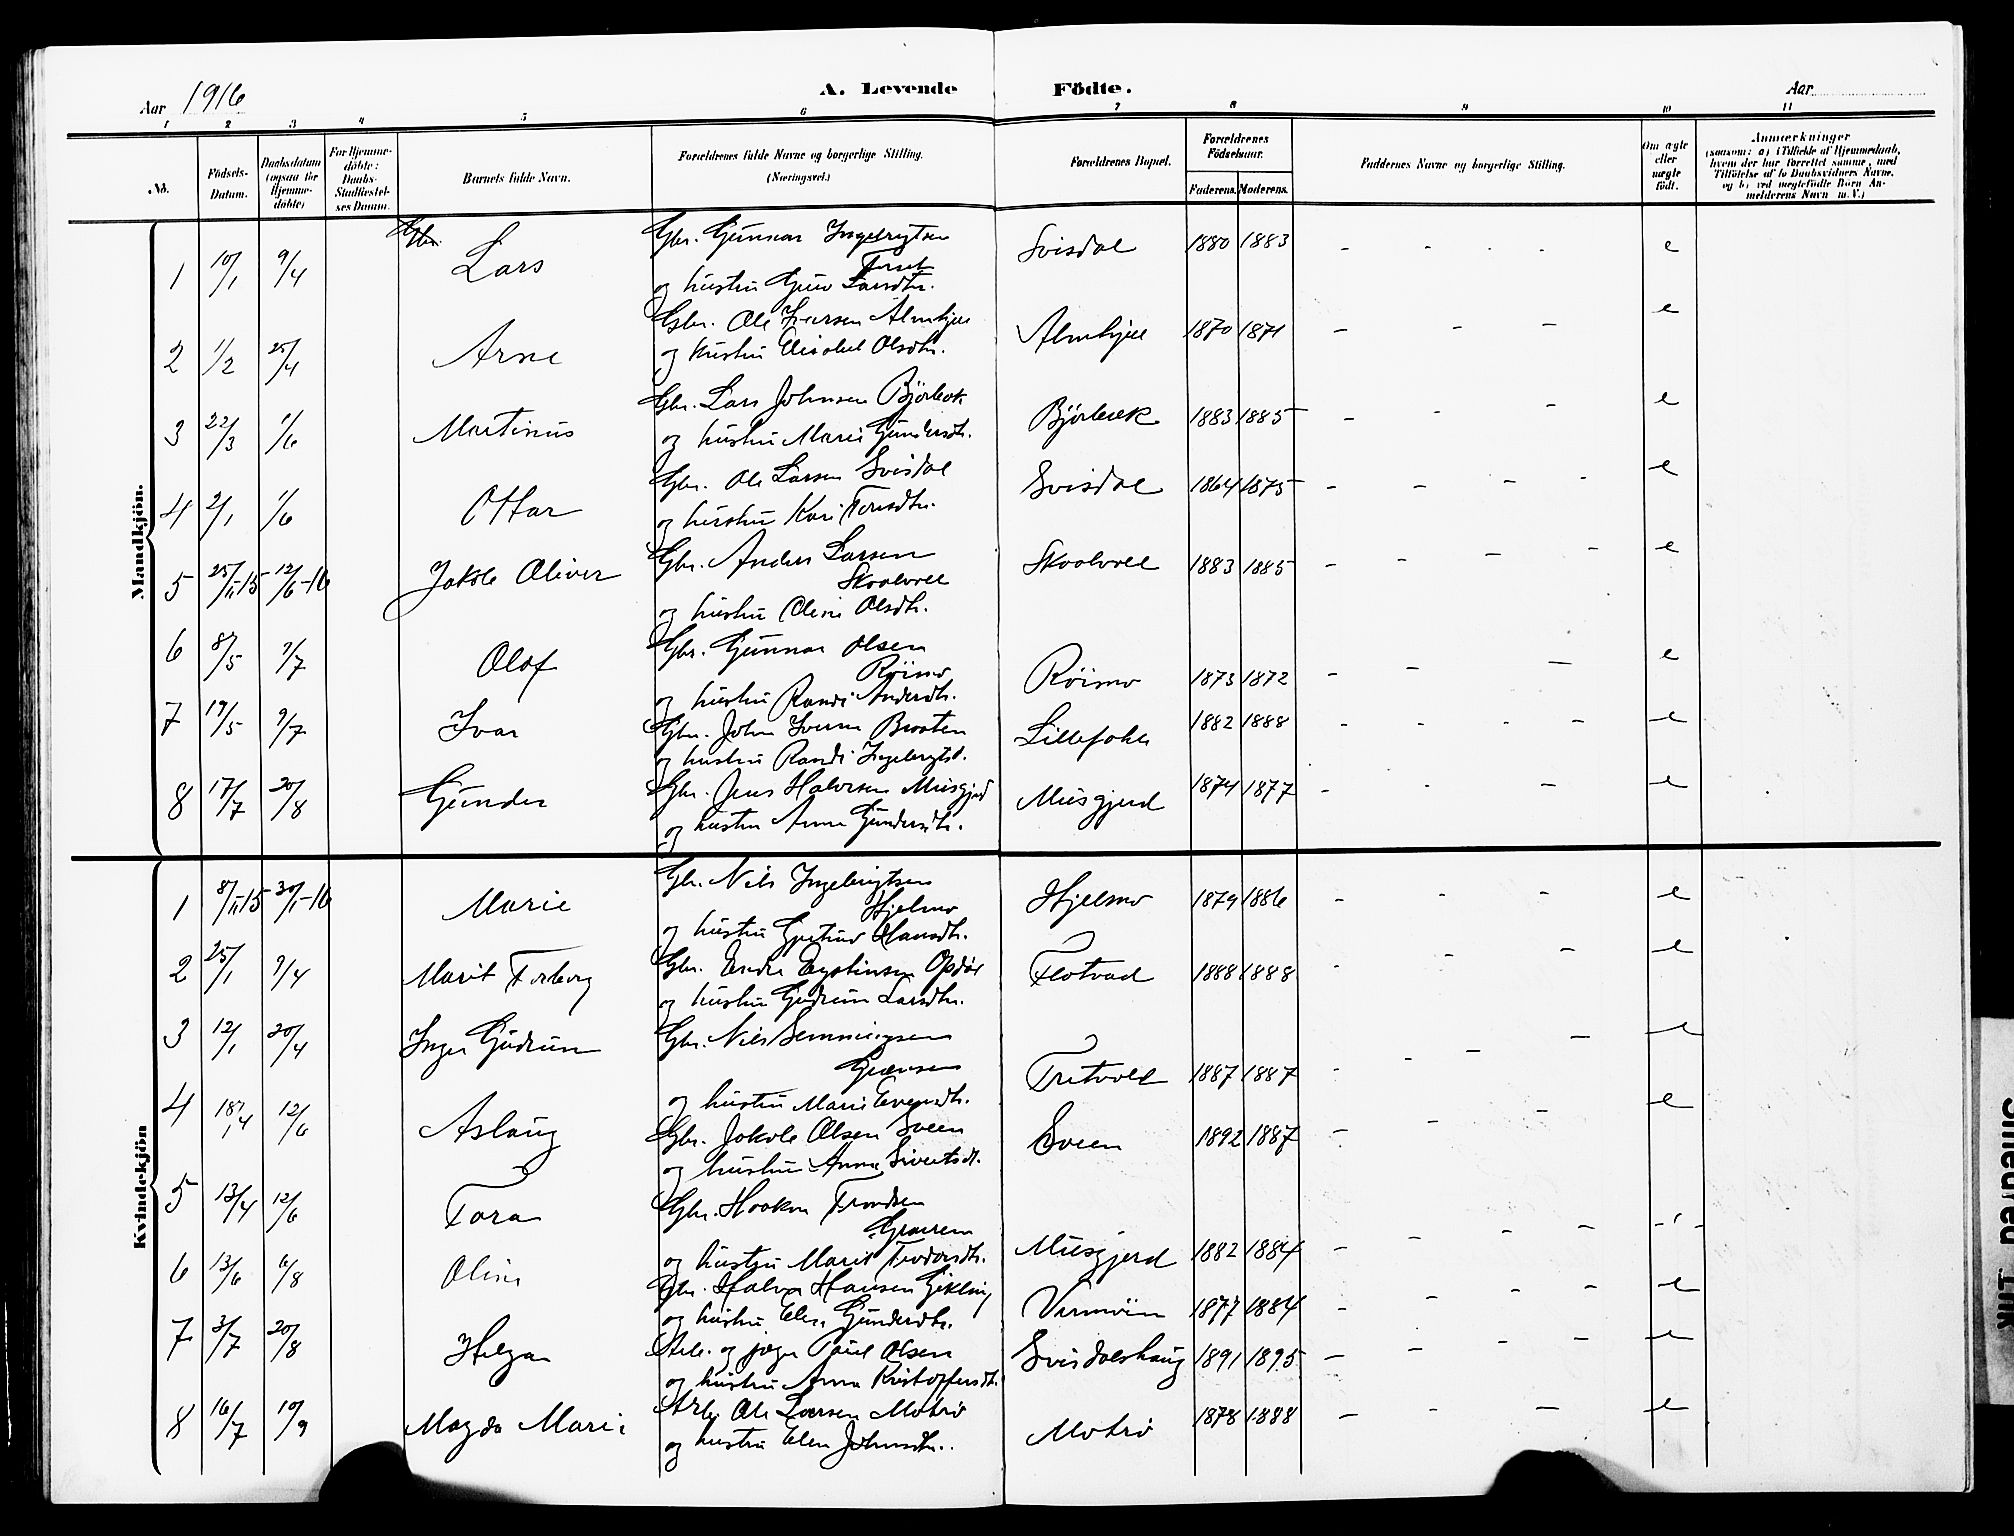 Aar 1916
A. Levende Födte.
Aar
1 2 3 4 5 6 7 8 9 10 11
No.
Födsels-Datum.
Daabsdatum (ogsaa for Hjemme-döbte)
For Hjemme-döbte: Daabs-Stadfæstel-ses Datum.
Barnets fulde Navn.
Forældrenes fulde Navne og borgerlige Stilling. (Næringsvei.)
Forældrenes Bopæl.
Forældrenes Födselsaar.
Faderens. Moderens.
Faddernes Navne og borgerlige Stilling.
Om ægte eller uægte födt.
Anmærkninger
(saasom: a) i Tilfælde af Hjemmedaab, hvem der har forrettet samme, med Tilföielse af to Daabsvidners Navne, og b) ved uægtefödte Börn An-melderens Navn m.V.)
Mandkjön.
1 10/1 9/4 Lars Gbr. Gunnar Ingebrigtsen Svisdal 1880 1883 - - - - e
og hustru Guro Larsdtr.
2 1/2 25/4 Arne Gbr. Ole Iversen Almhjell Almhjell 1870 1871 - - - e
og hustru Olsdtr.
3 22/3 1/6 Martinus Gbr. Lars Johnsen Björbæk Björbæk 1883 1885 - - - e
og hustru Marie Gundersdtr.
4 2/1 1/6 Ottar Gbr. Ole Larsen Svisdal Svisdal 1864 1875 - - - - e
og hustru Kari Toresdtr.
5 25/11-15 12/6-16 Jakob Oliver Gbr. Anders Larsen Skralvoll Skoolvoll 1883 1885 - - - - e
og hustru Oline Olsdtr.
6 8/5 9/7 Olof Gbr. Gunnar Olsen Röimo Röimo 1873 1872 - - - e
og hustru Randi Andersdtr.
7 19/5 9/7 Ivar Gbr. John Iversen Braaten Lillefale 1882 1888 - - - - e
og hustru Randi Ingebrigtsd.
8 17/7 20/8 Gunder Gbr. Jens Halvorsen Musgjerd Musgjerd 1874 1877 - - - e
og hustru Anne Gundersdtr.
Kvindekjön
1 8/11-15 30/1-16 Marie Gbr. Nils Ingebrigtsen Hjelmo Hjelmo 1879 1886 - - - e
og hustru Gjertrud Hansdtr.
2 25/1 9/4 Marit Torborg Gbr. Endre Eystinsen Opdöl Flotvad 1888 1888 - - - e
og hustru Gudrun Larsdtr.
3 12/1 20/4 Inger Gudrun Gbr. Nils Semmingsen Tretvoll 1887 1887 - - - - e
og hustru Marie Evensdtr.
4 18/4 12/6 Aslaug Gbr. Jakob Olsen Sveen Sveen 1892 1887 - - - e
og hustru Anne Sivertsd.
5 13/4 12/6 Tora Gbr. Haakon Trondsen Musgjerd 1882 1884 - - - -
og hustru Marit
6 13/6 6/8 Oline Gbr. Halvor Hansen Gikling 1877 1884 - - - - e
og hustru Elen Gundersdtr.
7 3/7 20/8 Helga Arb. og jæger Paul Olsen Svisdalshaug 1891 1895 - - - - e
og hustru Anna Kristoffersdt.
8 16/7 10/9 Magda Marie Arb. Ole Larsen Motrö Motrö 1878 1888 - - - e
og hustru Elen Johnsdtr.